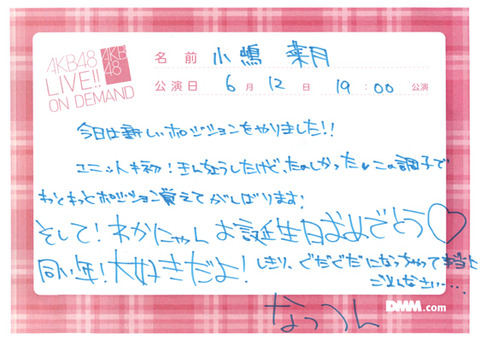 AKB48
LIVE!!
ON DEMAND
AKB
48
名前 小嶋 菜月
公演日 6月 12日 19:00 公演
今日は新しいポジションをやりました!!
ユニットも初!きんちょうしたけど、たのしかった♥この調子で
もっともっとポジション覚えてがんばります!
そして!わかにゃんお誕生日おめでとう♡
同い年!大好きだよ!しきり、ぐだぐだになっちゃって本当に
ごめんなさい…
なっつん
DMM.com